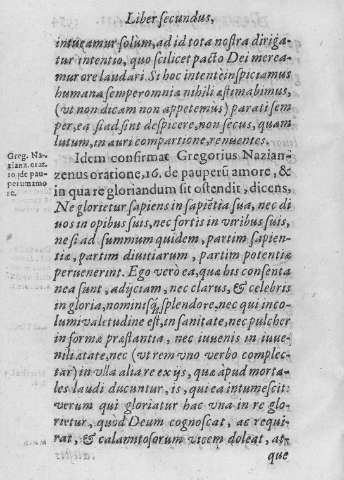 Liber secundus,
intueamur solum, ad id tota nostra diriga-
tur intentio, quo scilicet pacto Dei merea-
mur ore laudari. Si hoc intentè inspiciamus
humana semper omnia nihili æstimabimus,
(ut non dicam non appetemus) parati sem
per, ea si adsint despicere, non secus, quam
lutum, in auri compartione, renuentes.
Idem confirmat Gregorius Nazian-
zenus oratione, 16. de pauperũ amore, &
in qua re gloriandum sit ostendit, dicens,
Ne glorietur sapiens in sapiẽtia sua, nec di
uos in opibus suis, nec fortis in viribus suis,
ne si ad summum quidem, partim sapien-
tiæ, partim diuitiarum, partim potentiæ
peruenerint. Ego verò ea, quæ his consenta
nea sunt, adijciam, nec clarus, & celebris
in gloria, nominisq; splendore, nec qui inco-
lumi valetudine est, in sanitate, nec pulcher
in formæ præstantia, nec iuuenis in iuue-
nili ætate, nec (vt rem vno verbo complec-
tar) in vlla alia re ex ijs, quæ apud morta-
les laudi ducuntur, is, qui ea intumescit:
verum qui gloriatur hac vna in re glo-
rietur, quod Deum cognoscat, ac requi-
rat, & calamitosorum vicem doleat, at-
que
Greg. Na-
zianz. orat.
16. de pau-
perum amo
re.